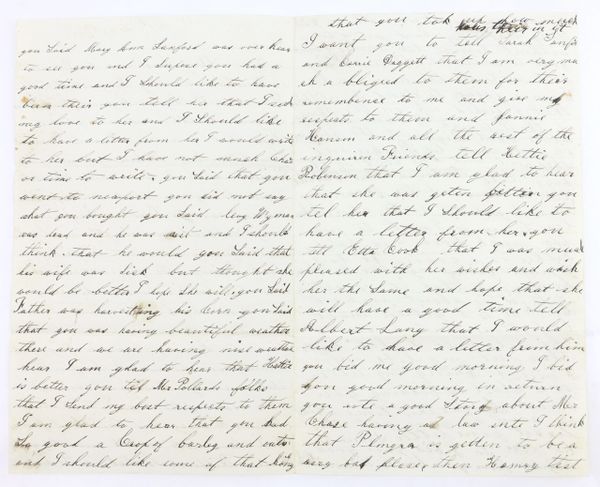 you Said Mary Ann Sanford was over hear
to see you and I Supose you had a
good time and I Should like to have
been their you tell her that I send
my love to her and I Should like
to have a letter from her I would write
to her but I have not much
or time to write, you Said that you
went to newport you did not say
what you bought you Said Levy Wyman
was dead and he was and I should
think that he would you Said that
his wife was Sick but thought she
would be better I hope she will, you Said
Father was harvesting his Corn you Said
that you was having beautiful weather
there and we are having nise weather
hear I am glad to hear that Hattie
is better you tel Mr Pollards folks
that I Send my best respects to them
I am glad to hear that you had
So good a Crop of barley and
and I should like some of that honey
that you tok up how much
was their in it
I want you to tell Sarah Sanford
and Carrie Daggett that I am very mu
ch a bliged to them for their
remembense to me and give my
respects to them and Fannie
Hanson and all the rest of the
inquiren Friends tell Hettie
Robinson that I am glad to hear
that she was geten better you
tel her that I Should like to
have a letter from her, you
tell Etta Cook that I was much
pleased with her wishes and wish
her the Same and hope that she
will have a good time tell
Albert Lang that I would
like to have a letter from him
you bid me good morning I bid
you good morning in return
you rote a good Story about Mr
Chase having a law I think
that Palmyra is getten to be a
very bad please then Henry